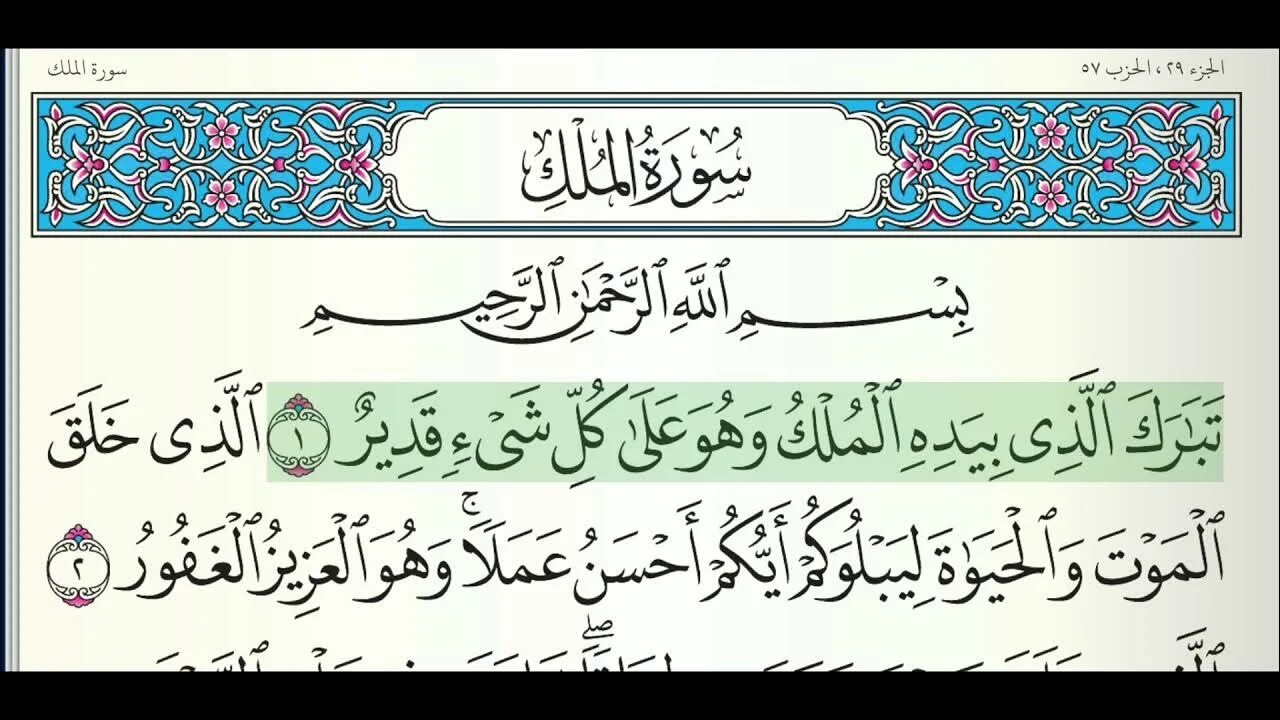 الجزء ٢٩، الحزب ٥٧
سورة الملك
سُورَةُ المُلْكِ
بِسْمِ ٱللَّهِ ٱلرَّحْمَٰنِ ٱلرَّحِيمِ
تَبَٰرَكَ ٱلَّذِى بِيَدِهِ ٱلْمُلْكُ وَهُوَ عَلَىٰ كُلِّ شَىْءٍ قَدِيرٌ ١ ٱلَّذِى خَلَقَ
ٱلْمَوْتَ وَٱلْحَيَوٰةَ لِيَبْلُوَكُمْ أَيُّكُمْ أَحْسَنُ عَمَلًا ۚ وَهُوَ ٱلْعَزِيزُ ٱلْغَفُورُ ٢